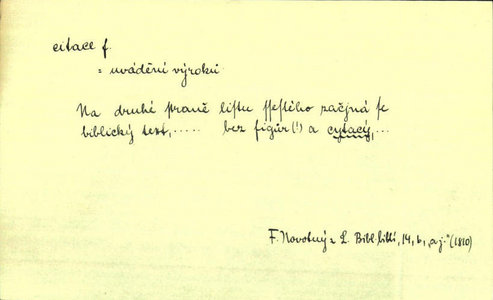 citace f.
= uvádění výroků
Na druhé straně listu ssestého začjná se
biblický text, ..... bez figůr (!) a cytacý, ...
F. Novotný z L. Bibl. 14, b, „a j." (1810)